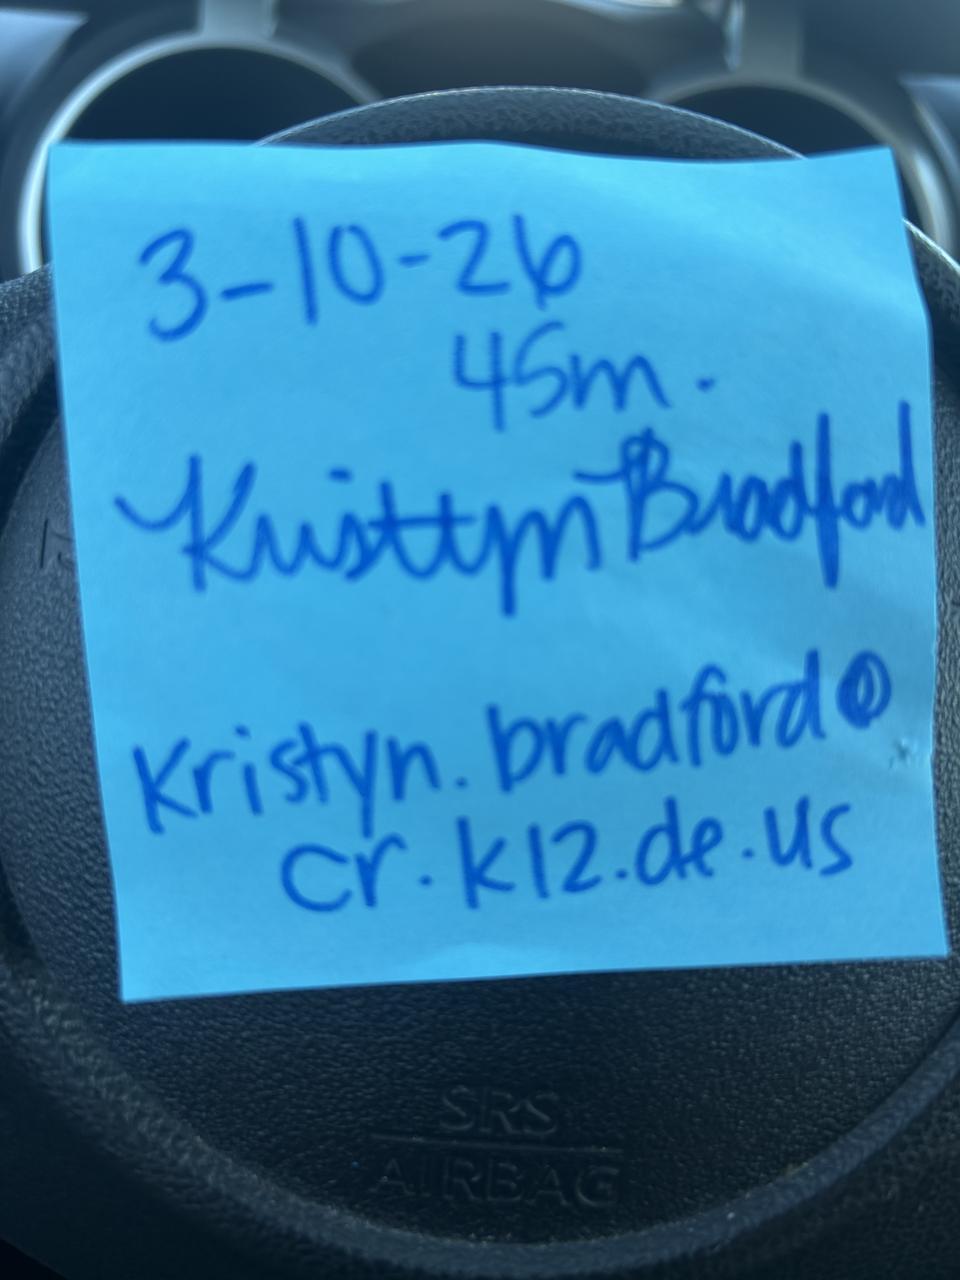 3-10-26
45m.
Kristtyn Bradford
Kristyn.bradford@
cr.k12.de.us
SRS
AIRBAG